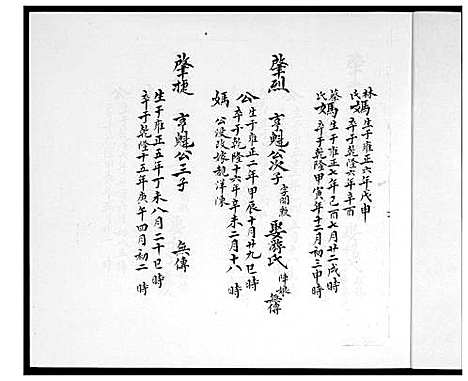 林氏媽生于雍正六年戊申
卒于乾隆六年辛酉
蔡氏媽生于雍正七年己酉七月廿二戌時
卒于乾隆甲寅年十二月初三申時
肇烈 亨魁公次子 字聞教 娶薛氏 無傳
公 生于雍正二年甲辰十月廿九巳時
卒于乾隆十六年辛未二月十八時
媽 公沒改嫁龍洋陳
肇捷 亨魁公三子 無傳
生于雍正五年丁未八月二十巳時
卒于乾隆十五年庚午四月初二時